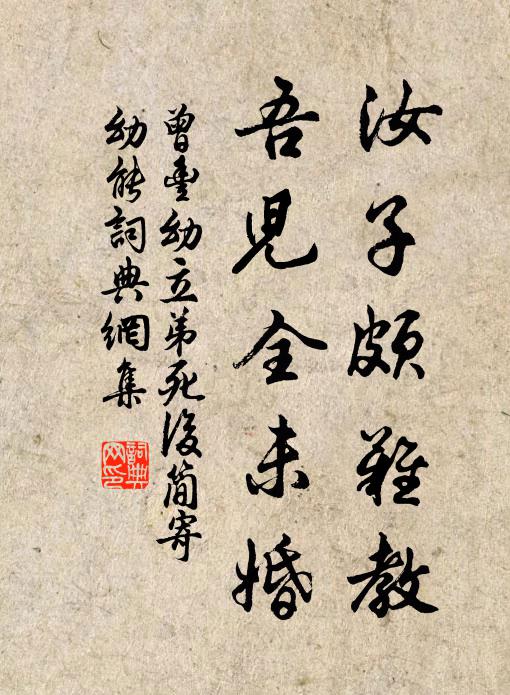 汝子頗難教
吾兒全未婚
曾豐幼立弟死後簡寄
幼能詞典網集
詞典網印